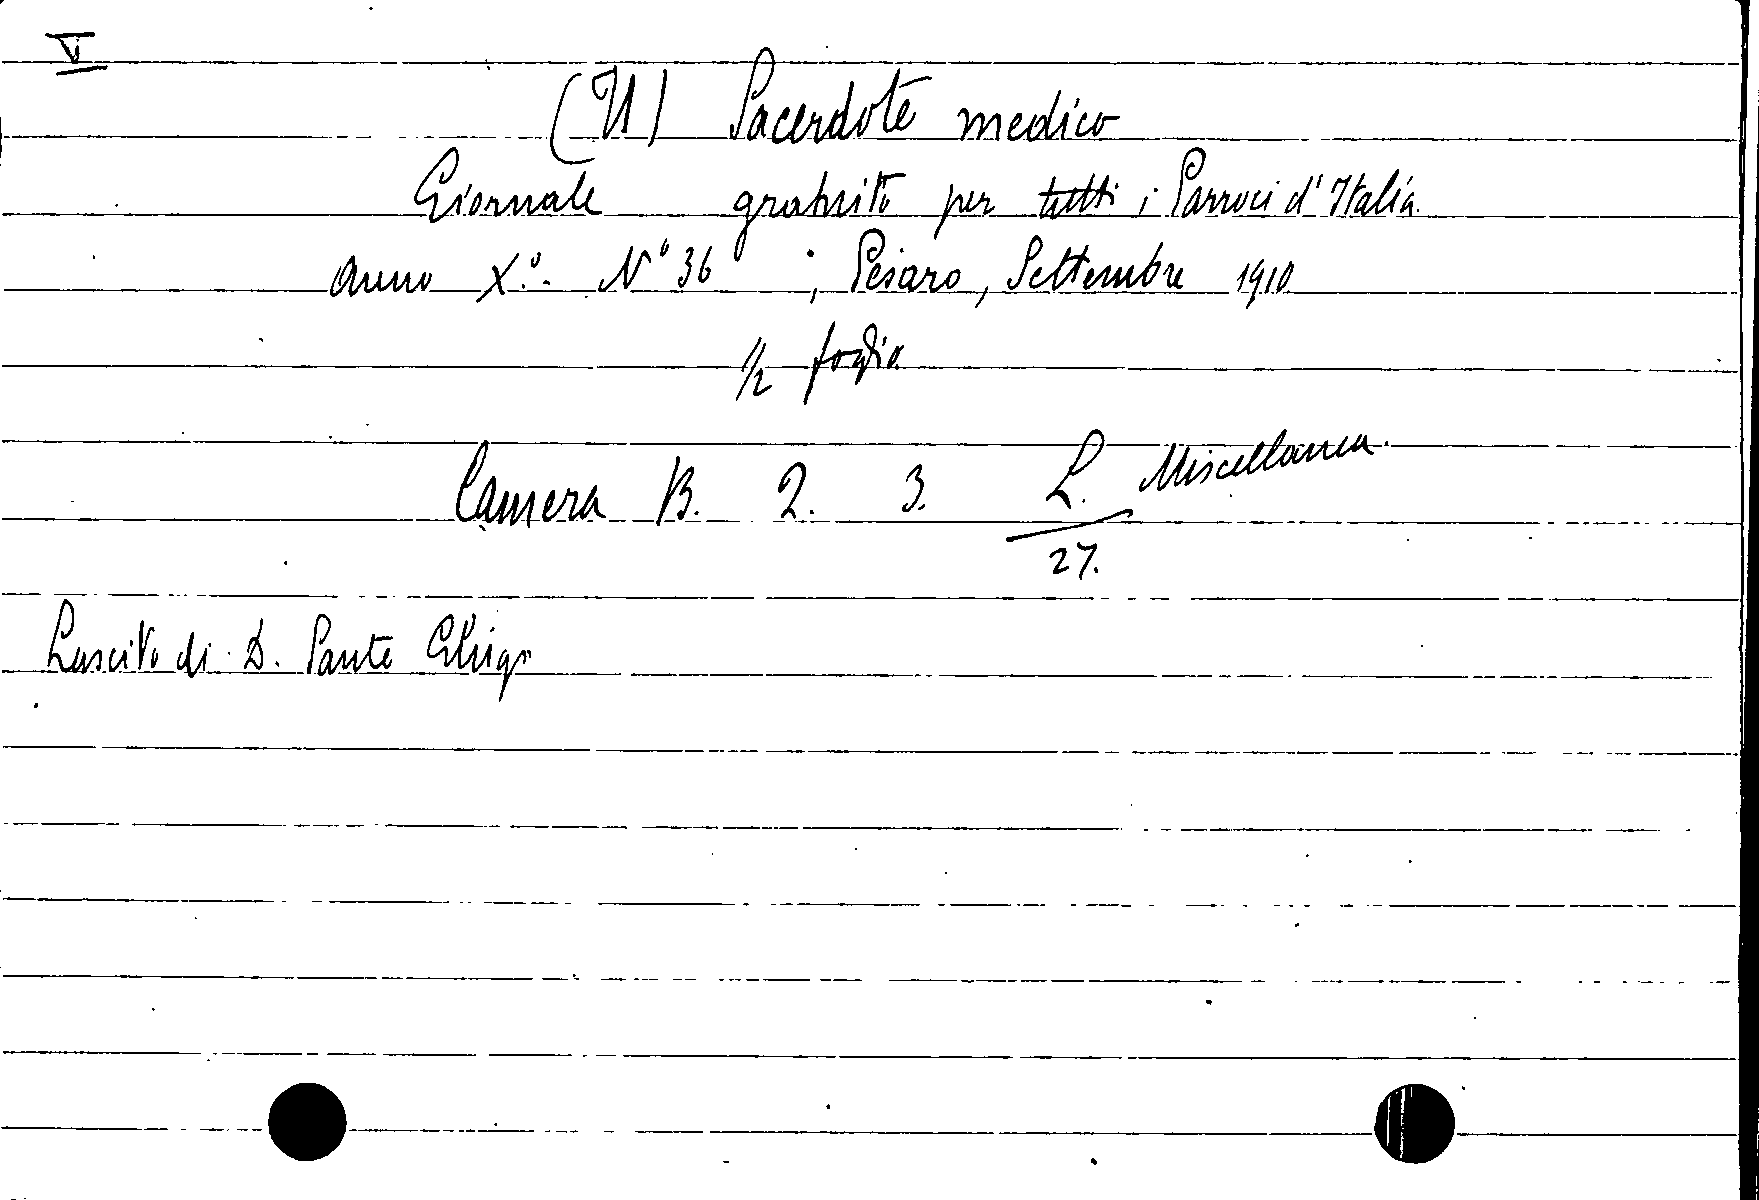 VI
(Il) Sacerdote medico
Giornale gratuito per tutti i Parroci d'Italia
anno X.º. Nº 36 ; Pesaro, Settembre 1910
1/2 foglio
Camera B. 2. 3. L. Miscellanea.
27.
Lascito di D. Sante Ghigi